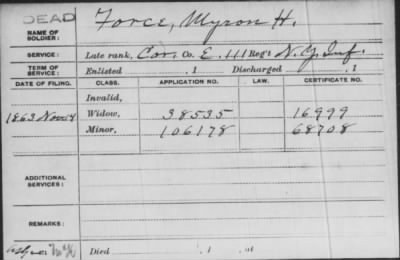 DEAD
NAME OF SOLDIER: Force, Myron H.
SERVICE: Late rank, Cor. Co. E. 111 Reg't N.Y. Inf.
TERM OF SERVICE: Enlisted , 1 Discharged , 1
DATE OF FILING. CLASS. APPLICATION NO. LAW. CERTIFICATE NO.
Invalid,
1863 Nov. 4 Widow, 38535 16999
Minor, 106178 68708
ADDITIONAL SERVICES:
REMARKS:
Died , 1 , at